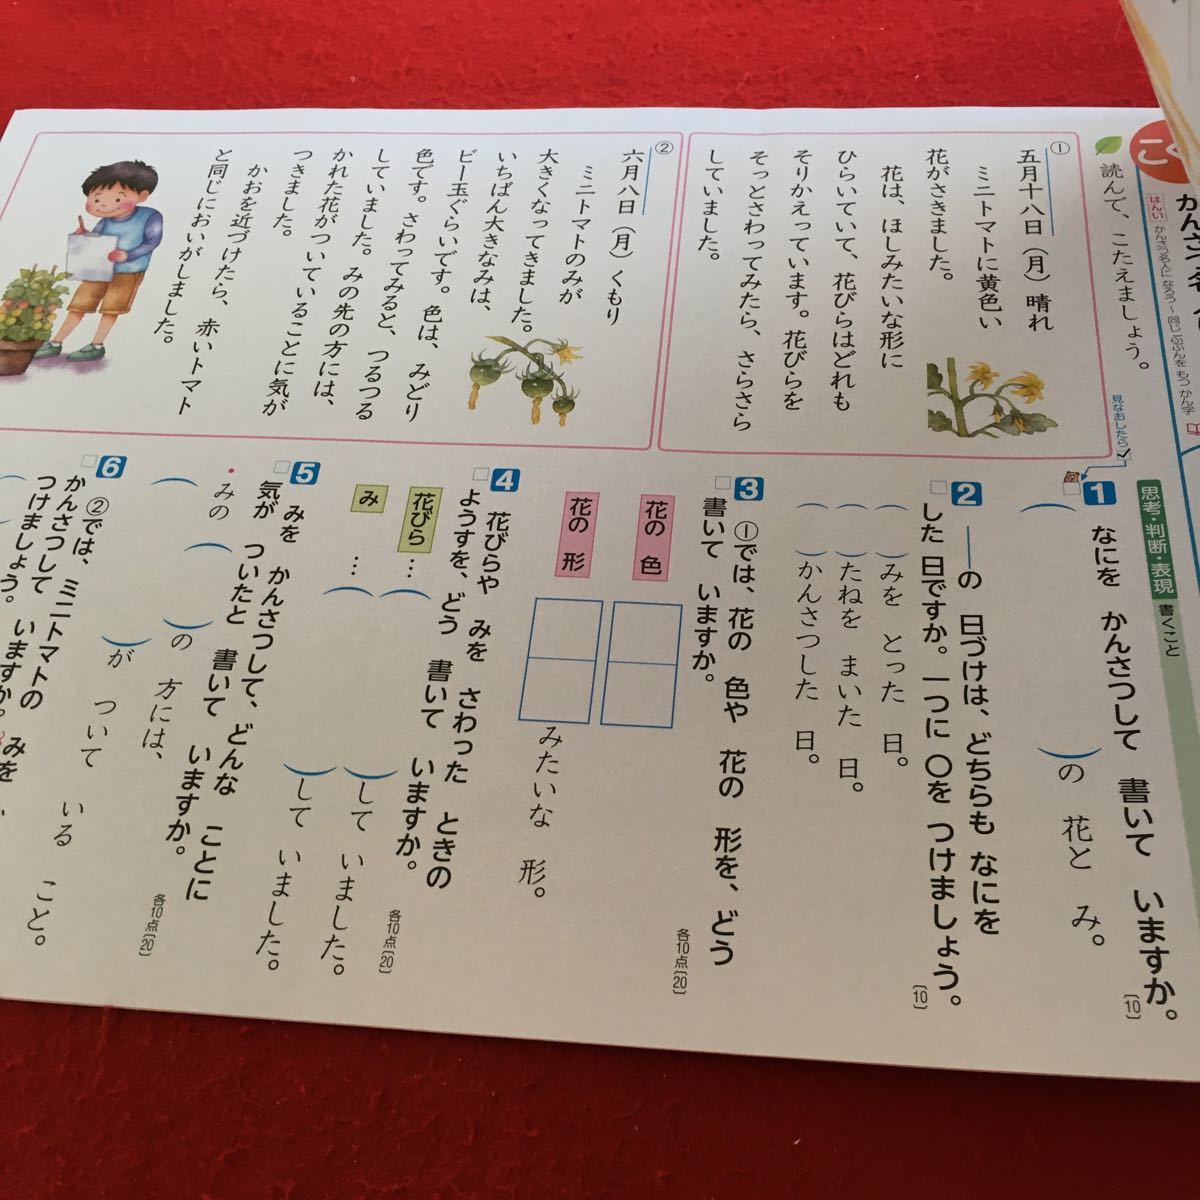 かんさつ名人
はんい
かんさつ名人に なろう〜同じ ぶぶんを もつ かん字
読んで、こたえましょう。
見なおしたら✓
①
五月十八日（月）晴れ
ミニトマトに黄色い
花がさきました。
花は、ほしみたいな形に
ひらいていて、花びらはどれも
そりかえっています。花びらを
そっとさわってみたら、さらさら
していました。
②
六月八日（月）くもり
ミニトマトのみが
大きくなってきました。
いちばん大きなみは、
ビー玉ぐらいです。色は、みどり
色です。さわってみると、つるつる
していました。みの先の方には、
かれた花がついていることに気が
つきました。
かおを近づけたら、赤いトマト
と同じにおいがしました。
思考・判断・表現
書くこと
1 なにを かんさつして 書いて いますか。
〔10〕
（　）の 花と み。
2 ――の 日づけは、どちらも なにを
した 日ですか。一つに ○を つけましょう。
〔10〕
（　）みを とった 日。
（　）たねを まいた 日。
（　）かんさつした 日。
3 ①では、花の 色や 花の 形を、どう
書いて いますか。
各10点〔20〕
花の 色
花の 形
みたいな 形。
4 花びらや みを さわった ときの
ようすを、どう 書いて いますか。
各10点〔20〕
花びら…（　）して いました。
み…（　）して いました。
5 みを かんさつして、どんな ことに
気が ついたと 書いて いますか。
各10点〔20〕
・みの（　）の 方には、
（　）が ついて いる こと。
6 ②では、ミニトマトの みを
かんさつして いますか。
つけましょう。